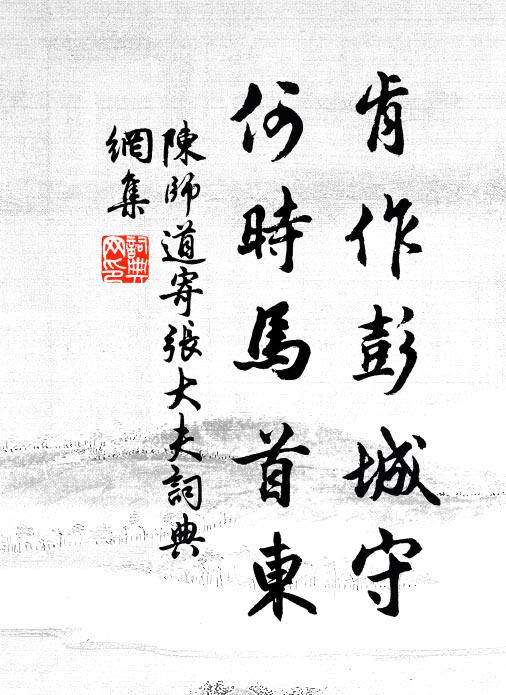 肯作彭城守
何時馬首東
陳師道寄張大夫詞典
網集
詞典
网印